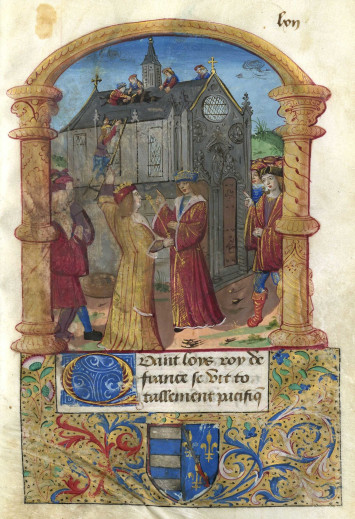 Quant loys roy de
france se vit to
tallement pacifiq